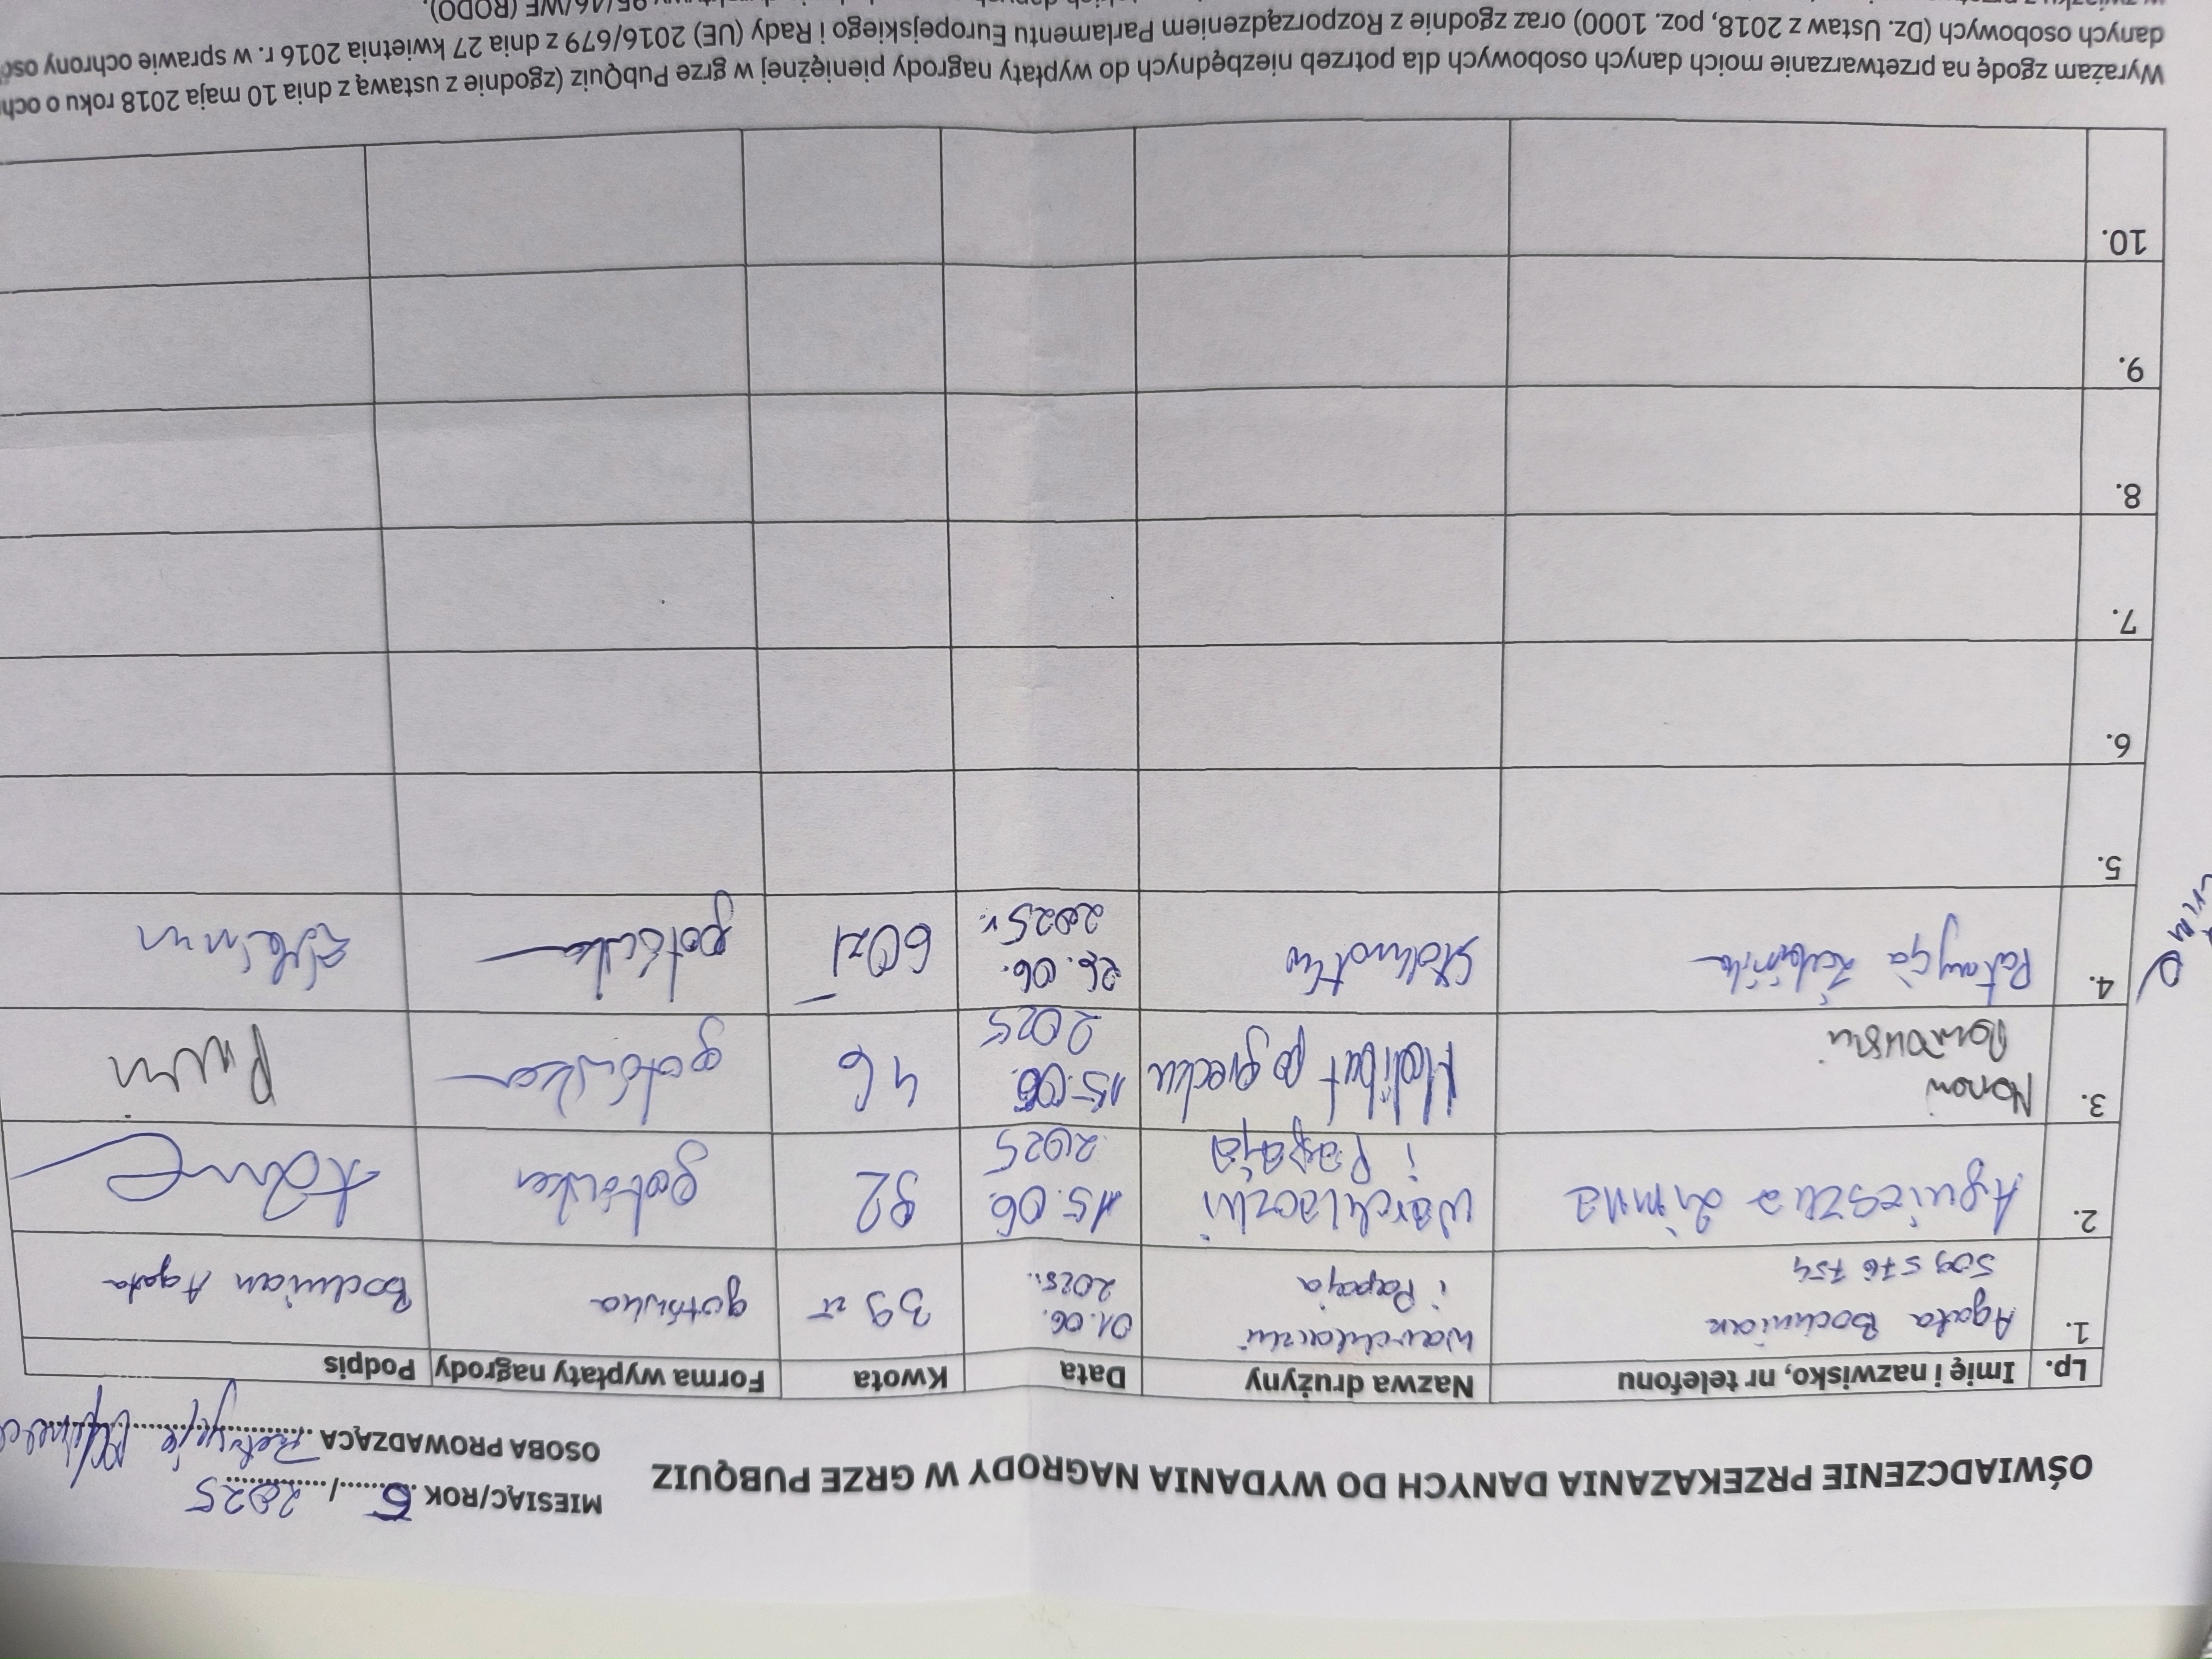 OŚWIADCZENIE PRZEKAZANIA DANYCH DO WYDANIA NAGRODY W GRZE PUBQUIZ
MIESIĄC/ROK ........./............. 2025
OSOBA PROWADZĄCA
Lp. Imię i nazwisko, nr telefonu Nazwa drużyny Data Kwota Forma wypłaty nagrody Podpis
1. Agata Bocinian warchlaczki 01.06. 39 zł gotówka Bocinian Agata
509 576 754 i Papaja 2025r.
2. Agnieszka Zimna Warchlaczki 15.06. 92 gotówka
i Papaja 2025
3. Halibut po grecku 15.06. 46 gotówka
2025
4. Patrycja 26.06. 60zł gotówka
2025r.
5.
6.
7.
8.
9.
10.
Wyrażam zgodę na przetwarzanie moich danych osobowych dla potrzeb niezbędnych do wypłaty nagrody pieniężnej w grze PubQuiz (zgodnie z ustawą z dnia 10 maja 2018 roku o och
danych osobowych (Dz. Ustaw z 2018, poz. 1000) oraz zgodnie z Rozporządzeniem Parlamentu Europejskiego i Rady (UE) 2016/679 z dnia 27 kwietnia 2016 r. w sprawie ochrony osó
95/46/WE (RODO).